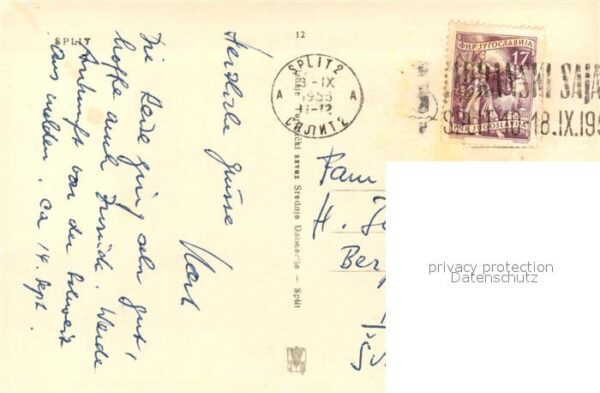 SPLIT
12
Die Reise ging sehr gut,
hoffe auch zurück. Werde
Ankunft von der Schweiz
aus melden. ca 14. Sept.
Herzliche Grüsse
Karl
SPLIT 2
-IX
A A
11-12
СПЛИТ 2
ФНР ЈУГОСЛАВИЈА
17
SPLIT 10 18.IX.195
zavod Srednje Dalmacije — Split
Fam
H.
Ber
privacy protection
Datenschutz